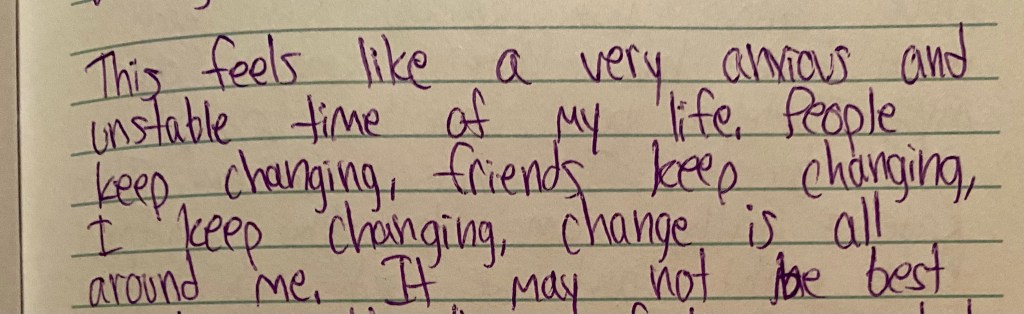 This feels like a very anxious and
unstable time of my life. People
keep changing, friends keep changing,
I keep changing, change is all
around me. It may not be best